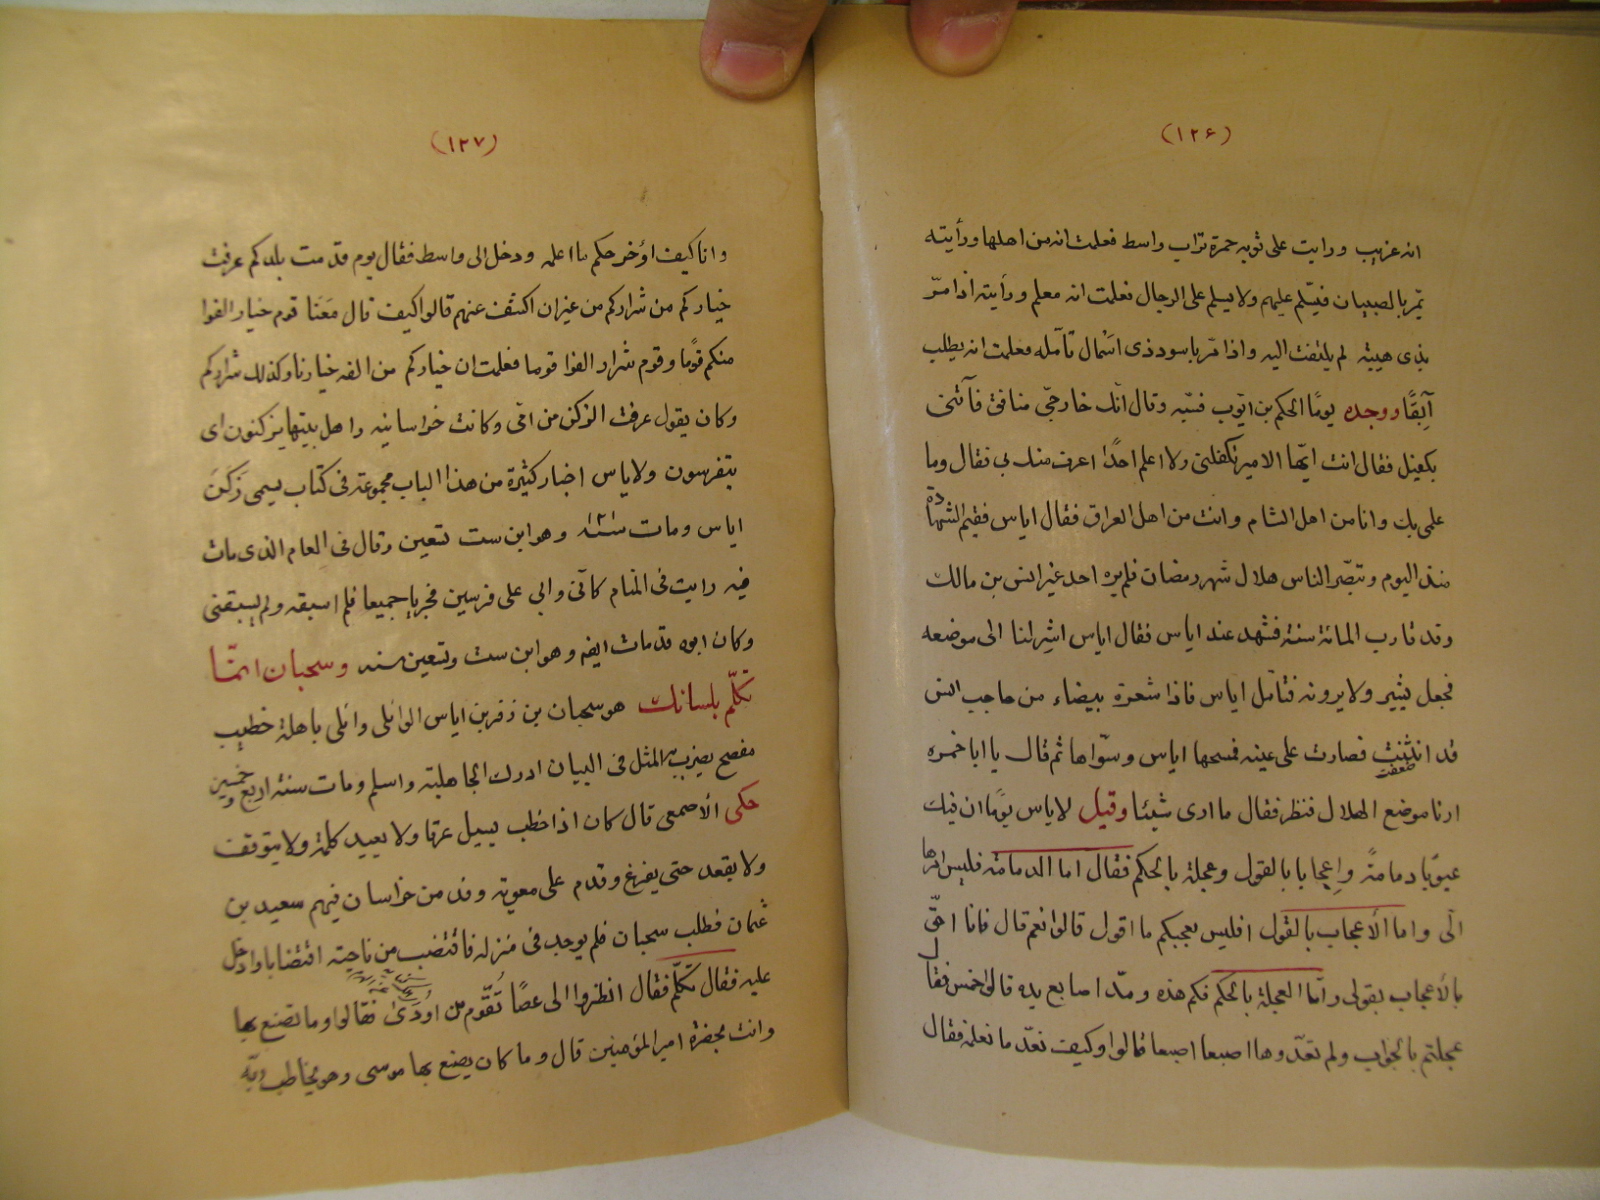 (١٢۶)
انه غريب ورايت على ثوبه حمرة تراب واسط فعلمت انه من اهلها ورأيته
يمّر بالصبيان فيسّلم عليهم ولا يسلم على الرجال فعلمت انه معلم ورأيته اذا مرّ
بذى هيئة لم يلتفت اليه واذا مّر باسود ذى اسْمال تأمله فعلمت انه يطلب
آبِقًا ووجده يومًا الحكم بن ايّوب فسبّه وقال انّك خارجىّ منافق فأتنى
بكفيل فقال انت ايّها الامير تكفلنى ولا اعلم احدًا اعرف منك بى فقال وما
علمى بك وانا من اهل الشام وانت من اهل العراق فقال اياس ففيم الشهادة
منذ اليوم وتبصّر الناس هلال شهر رمضان فلم يره احد غير انس بن مالك
وقد قارب المائة سنة فشهد عند اياس فقال اياس اشِر لنا الى موضعه
فجعل يشير ولا يرونه فتأمل اياس فاذا شعرة بيضاء من حاجب انس
قد انثنت فصارت على عينه فمسحها اياس وسوّاها ثم قال يا ابا حمزه
ارنا موضع الهلال فنظر فقال ما ارى شيئا وقيل لاياس يومًا ان فيك
عيوبًا دمامةً واِعجابا بالقول وعجلة بالحكم فقال اما الدمامة فليس امرها
الىّ واما الأعجاب بالقول افليس يعجبكم ما اقول قالوا نعم قال فانا احقّ
بالأعجاب بقولى وامّا العجلة بالحكم فكم هذه ومدّ اصابع يده قالوا خمس فقال
عجلتم بالجواب ولم تعدّوها اصبعا اصبعا قالوا وكيف نعدّ ما نعلمه فقال
(١٢٧)
وانا كيف اؤخر حكم ما اعلمه ودخل الى واسط فقال يوم قدمت بلدكم عرفت
خياركم من شراركم من غير ان اكشف عنهم قالوا كيف قال مَعَنا قوم خيار الفوا
منكم قومًا وقوم شرار الفوا قوما فعلمت ان خياركم من الفه خيارنا وكذلك شراركم
وكان يقول عرفت الزكن من امّى وكانت خراسانيه واهل بيتها يزكنون اى
يتفرسون ولاياس اخبار كثيرة من هذا الباب مجموعة فى كتاب يسمى زَكنَ
اياس ومات سنة ١٢١ وهو ابن ست تسعين وقال فى العام الذى مات
فيه رايت فى المنام كأنى وابى على فرسين فجريا جميعا فلم اسبقه ولم يسبقنى
وكان ابوه قد مات ايضه وهو ابن ست وتسعين سنه وسحبان انمّا
تكلّم بلسانك هو سحبان بن زفر بن اياس الوائلى وائلى باهلة خطيب
مفصح يضرب به المثل فى البيان ادرك الجاهلية واسلم ومات سنة اربع وخمسين
حكى الأصمعى قال كان اذا خطب يسيل عرقا ولا يعيد كلمة ولا يتوقف
ولا يقعد حتى يفرغ وقدم على معوية وفد من خراسان فيهم سعيد بن
عثمان فطلب سحبان فلم يوجد فى منزله فاقتضب من ناحية اقتضابا وادخل
عليه فقال تكلّم فقال انظروا الى عصًا تُقَّوم من اودى فقالوا وما تصنع بها
وانت بحضرة امير المؤمنين قال وما كان يصنع بها موسى وهو يخاطب ربّه